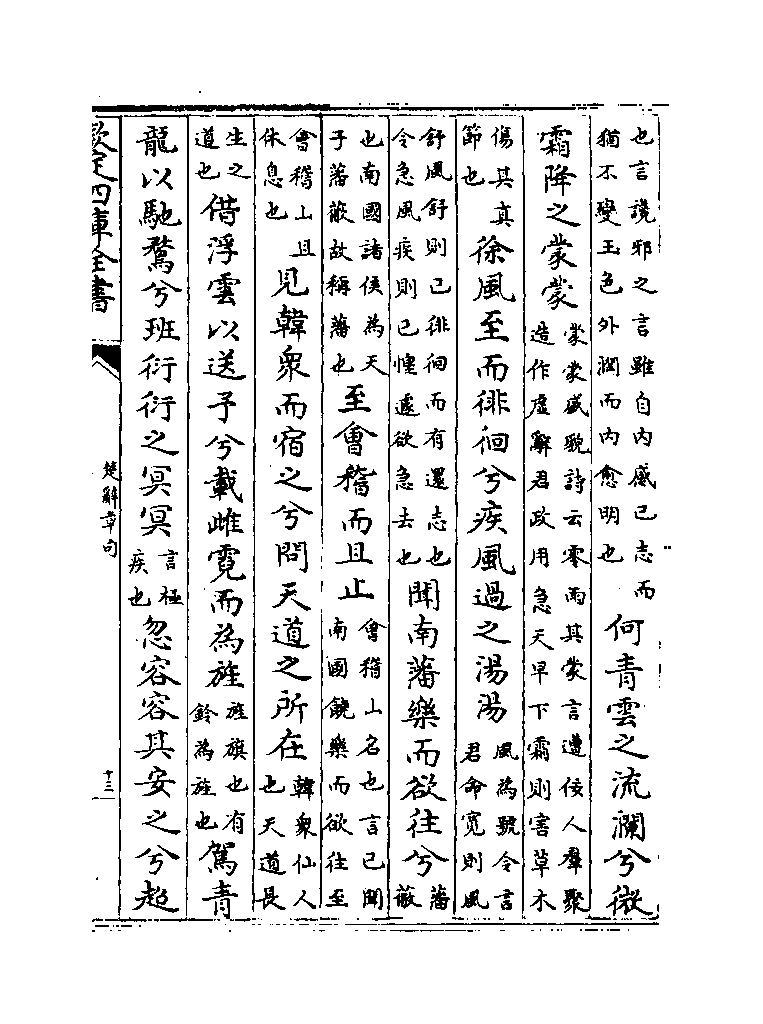 也言讒邪之言雖自内感已志而
猶不變玉色外潤而内愈明也
何青雲之流瀾兮微
霜降之蒙蒙
蒙蒙盛貌詩云零雨其蒙言遭佞人羣聚
造作虚辭君政用急天早下霜則害草木
傷其真
節也
徐風至而徘徊兮疾風過之湯湯
風為號令言
君命寛則風
舒風舒則已徘徊而有還志也
令急風疾則已惶遽欲急去也
聞南藩樂而欲往兮
藩
蔽
也南國諸侯為天
子藩蔽故稱藩也
至會稽而且止
會稽山名也言已聞
南國饒樂而欲往至
會稽山且
休息也
見韓衆而宿之兮問天道之所在
韓衆仙人
也天道長
生之
道也
借浮雲以送予兮載雌霓而為旌
旌旗也有
鈴為旌也
駕青
龍以馳騖兮班衍衍之冥冥
言極
疾也
忽容容其安之兮超
欽定四庫全書
楚辭章句
十三